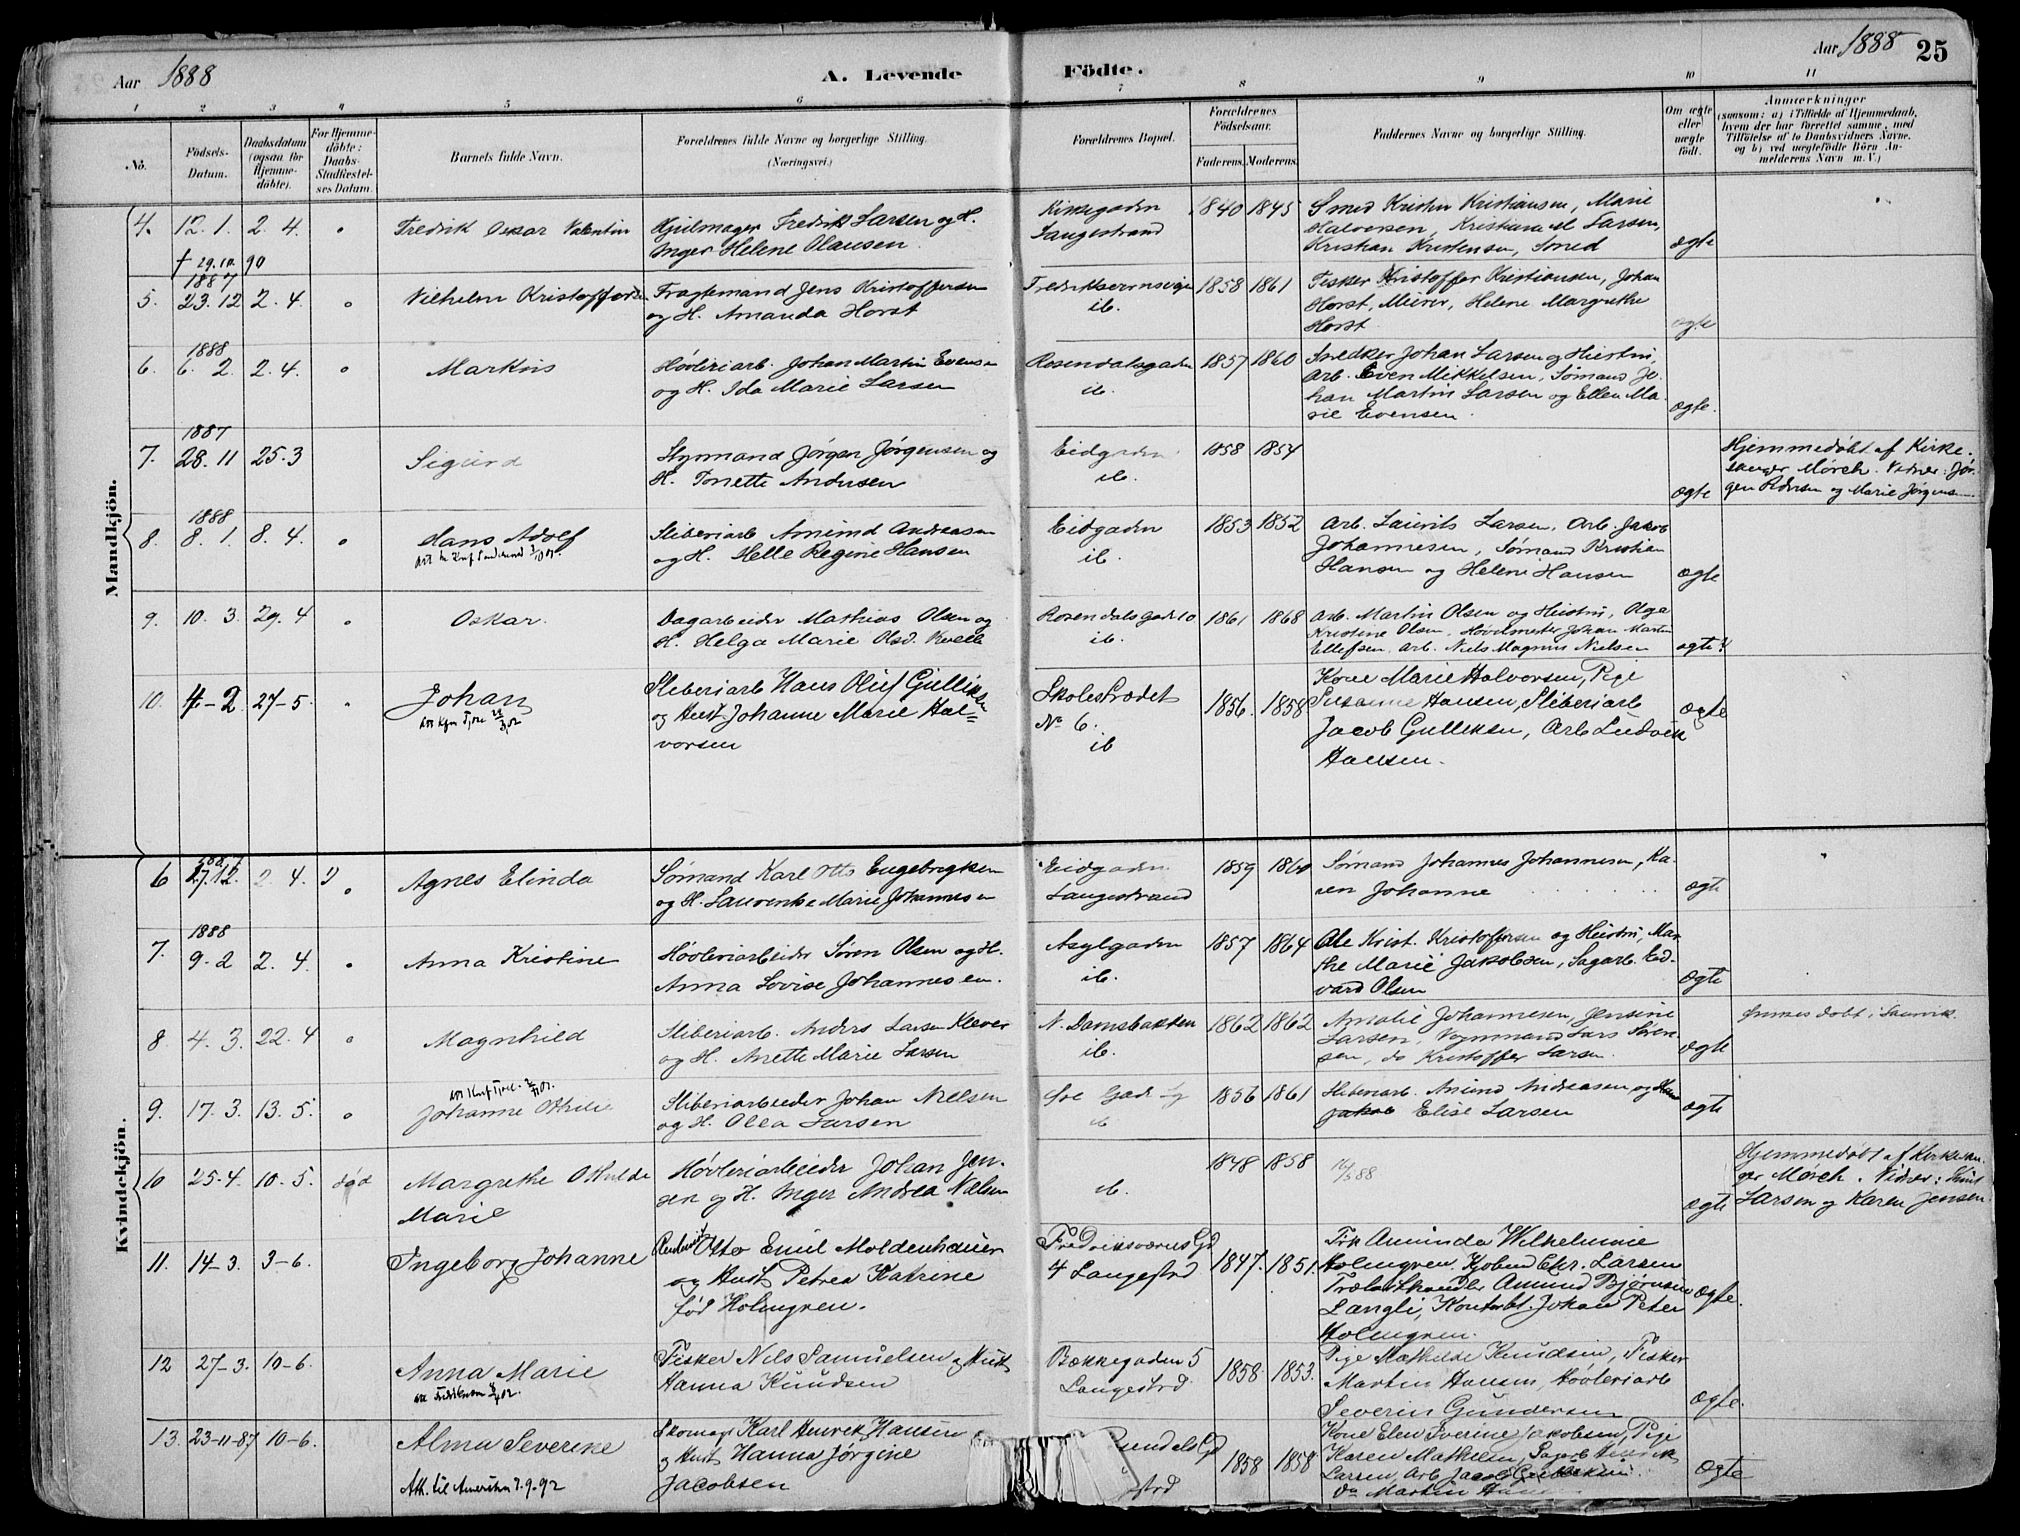 Aar 1888
A. Levende
Födte.
Aar 1888
25
1 2 3 4 5 6 7 8 9 10 11
No.
Födsels-
Datum.
Daabsdatum
(ogsaa for
Hjemme-
döbte).
For Hjemme-
döbte:
Daabs-
Stadfæstel-
ses Datum.
Barnets fulde Navn.
Forældrenes fulde Navne og borgerlige Stilling.
(Næringsvei.)
Forældrenes Bopæl.
Forældrenes
Födselsaar.
Faderens. Moderens.
Faddernes Navne og borgerlige Stilling.
Om ægte
eller
uægte
födt.
Anmærkninger
(saasom: a) i Tilfælde af Hjemmedaab,
hvem der har forrettet samme, med
Tilföielse af to Daabsvidners Navne,
og b) ved uægtefödte Börn An-
melderens Navn m. V.)
Mandkjön.
4. 12. 1. 2. 4. Fredrik Oskar Valentin
† 29.10.90
Hjulmager Fredrik Larsen og H.
Inger Helene Olausen.
Kirkegaden
Langestrand
1840 1845
Smed Kristen Kristiansen, Marie
Halvorsen, Kristiana M Larsen,
Kristian Kristensen, Smed
ægte
1887
5. 23.12 2. 4. Vilhelm Kristoffer
Fragtemand Jens Kristoffersen
og H. Amanda Horst
Fredriksværnsveien
ib.
1858 1861
Fisker Kristoffer Kristiansen, Johan
Horst, Murer, Helene Margrethe
Horst
ægte
1888
6. 6. 2. 2. 4. Markus
Høvleriarb. Johan Martin Evensen
og H. Ida Marie Larsen
Rosendalsgaden
ib.
1857 1860
Snedker Johan Larsen og Hustru,
Arb. Even Mikkelsen, Sømand Jo-
han Martin Larsen og Ellen Ma-
rie Evensen.
ægte.
1887
7. 28.11 25.3 Sigurd
Styrmand Jørgen Jørgensen og
H. Tonette Andersen
Eidgaden
ib.
1858 1854
ægte
Hjemmedøbt af Kirke-
sanger Mørch. Vidner: Jør-
gen Pedersen og Marie Jørgensen
1888
8. 8. 1. 8. 4. Hans Adolf
Sliberiarb Amund Andreasen
og H. Helle Regine Hansen
Eidgaden
ib.
1853 1852
Arb. Laurits Larsen, Arb. Jakob
Johannesen, Sømand Kristian
Hansen og Helene Hansen
ægte
9. 10. 3. 29. 4 Oskar.
Dagarbeider Mathias Olsen og
H. Helga Marie Olsd.
Rosendalsgade 10
ib.
1861 1868
Arb. Martin Olsen og Hustru, Olga
Kristine Olsen, Høvelmester Johan Martin
Ellefsen, Arb. Niels Magnus Nielsen
ægte
10. 4-2 27-5. Johan
Sliberiarb Hans Oluf Gulliksen
og Hust Johanne Marie Hal-
vorsen
Skolestrædet
No 6.
ib
1856. 1858
Kone Marie Halvorsen, Pige
Susanne Hansen, Sliberiarb
Jacob Gulliksen, Arb Ludvik
Hansen.
ægte
Kvindekjön.
6 27.12. 2. 4. Agnes Elinda
Sømand Karl Otto Engebrigtsen
og H. Laurentse Marie Johannesen
Eidgaden
Langestrand
1859 1860
Sømand Johannes Johannesen, Ka-
ren Johanne
ægte
1888
7. 9. 2 2. 4. Anna Kristine
Høvleriarbeider Søren Olsen og H.
Anna Lovise Johannesen.
Asylgaden
ib.
1857 1864
Ole Krist. Kristofersen og Hustru, Mar-
the Marie Jakobsen, Sagarb. Ed-
vard Olsen
ægte
8. 4. 3. 22. 4 Magnhild
Sliberiarb. Anders Larsen Klever
og H. Anette Marie Larsen
N. Damsbakken
ib.
1862 1862
Amalie Johannesen, Jensine
Larsen, Vognmand Lars Søren-
sen, do Kristoffer Larsen.
ægte
9. 17. 3. 13. 5. Johanne Othilie
Sliberiarbeider Johan Nielsen
og H. Olea Larsen
1856 1861
Sliberiarb. Amund Andreasen og
Elise Larsen
ægte
10 25.4. 10. 5. død Margrethe Othilde
Marie
Høvleriarbeider Johan Jen-
sen og H. Inger Andrea Nielsen
ib.
1848 1858
ægte
Hjemmedøbt af Kirkesan-
ger Mørch. Vidner: Knut
Larsen og Karen Jensen
11. 14-3. 3-6. Ingeborg Johanne
Otto Emil Moldenhauer
og Hust Petrea Katrine
fød Holmgren.
Fredriksværns Gd
4 Langestrd
1847. 1851.
Frk Aminda Wilhelmine
Holmgren. Kjøbmd Chr. Larsen
Trælasthandler Amund Bjørnsen
Langli, Kontorbt. Johan Peter
Holmgren.
ægte.
12 27-3. 10-6. Anna Marie
Fisker Nils Samuelsen og Hust
Hanna Knudsen
Bækkegaden 5
Langestrd.
1858. 1853.
Pige Mathilde Knudsen, Fisker
Martin Hansen, Høvleriarb
Severin Gundersen
ægte.
13. 23-11-87 10-6. Alma Severine
Att. til Amerika 7.9.92
Skomag Karl Henrik Hansen
og Hust Hanna Jørgine
Jacobsen
1858 1858.
Kone Elen Sverine Jakobsen, Pige
Karen Mathilsen, Sagarb Henrik
Larsen, Arb Jacob Gulliksen
Do Martin
ægte